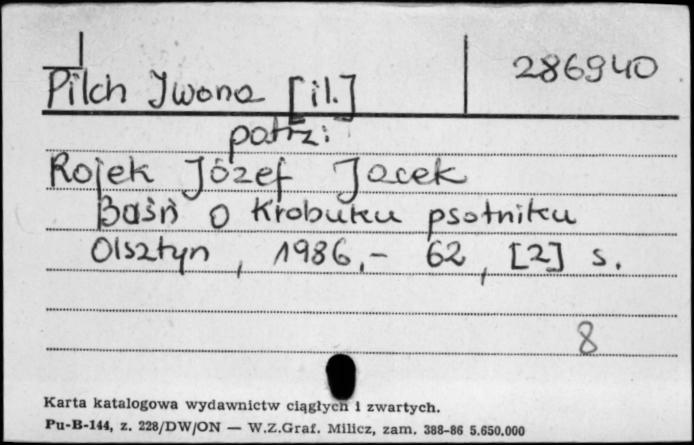 286940
Pilch Iwona [il.]
patrz:
Rojek Józef Jacek
Baśń o Kłobuku psotniku
Olsztyn, 1986.- 62, [2] s.
8
Karta katalogowa wydawnictw ciągłych i zwartych.
Pu-B-144, z. 228/DW/ON — W.Z.Graf. Milicz, zam. 388-86 5.650.000